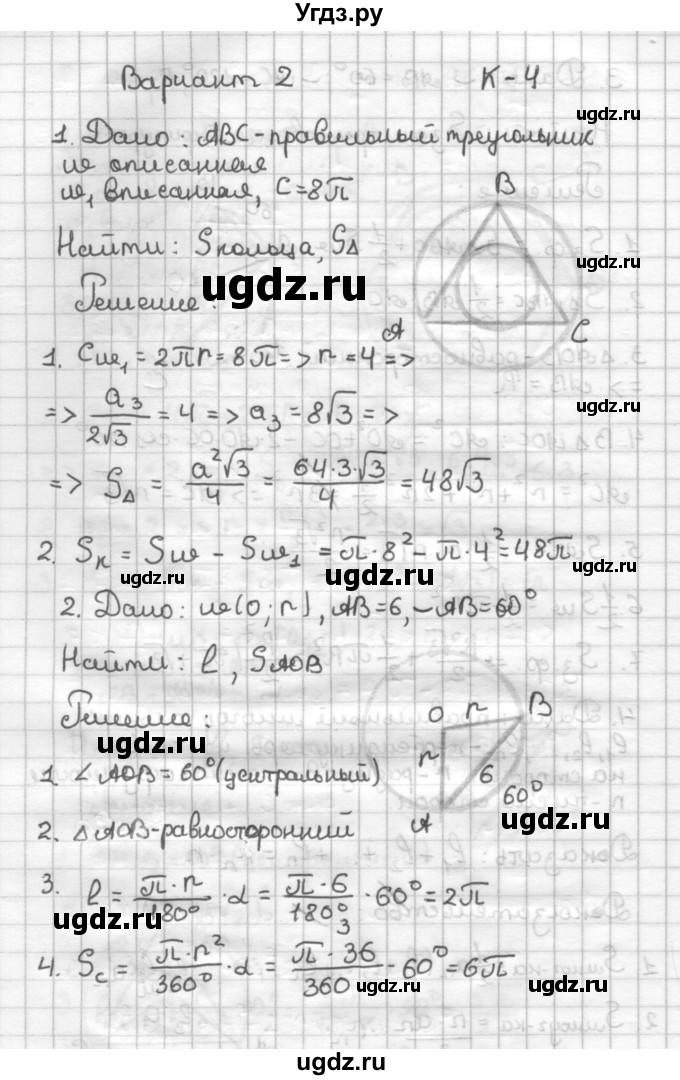 Угдз.ру
Вариант 2 К-4
ugdz.ru
1. Дано: ABC - правильный треугольник
ugdz.ru
ω описанная
ω₁ вписанная, C = 8π
ugdz.ru
B
Найти: Sкольца, S△
ugdz.ru
Решение:
A
C
1. Cω₁ = 2πr = 8π => r = 4 =>
=> a₃/2√3 = 4 => a₃ = 8√3 =>
=> S△ = a²√3/4 = 64·3·√3/4 = 48√3
2. Sк = Sω - Sω₁ = π·8² - π·4² = 48π
ugdz.ru ugdz.ru ugdz.ru
2. Дано: ω(O; r), AB = 6, ◡AB = 60°
Найти: l, SAOB
Решение:
O r B
ugdz.ru
r
6
60°
A
1. ∠AOB = 60° (центральный)
ugdz.ru
2. △AOB - равносторонний
3. l = π·r/180° · α = π·6/180° · 60° = 2π
3
ugdz.ru
4. Sс = π·r²/360° · α = π·36/360 - 60° = 6π
ugdz.ru ugdz.ru
ugdz.ru